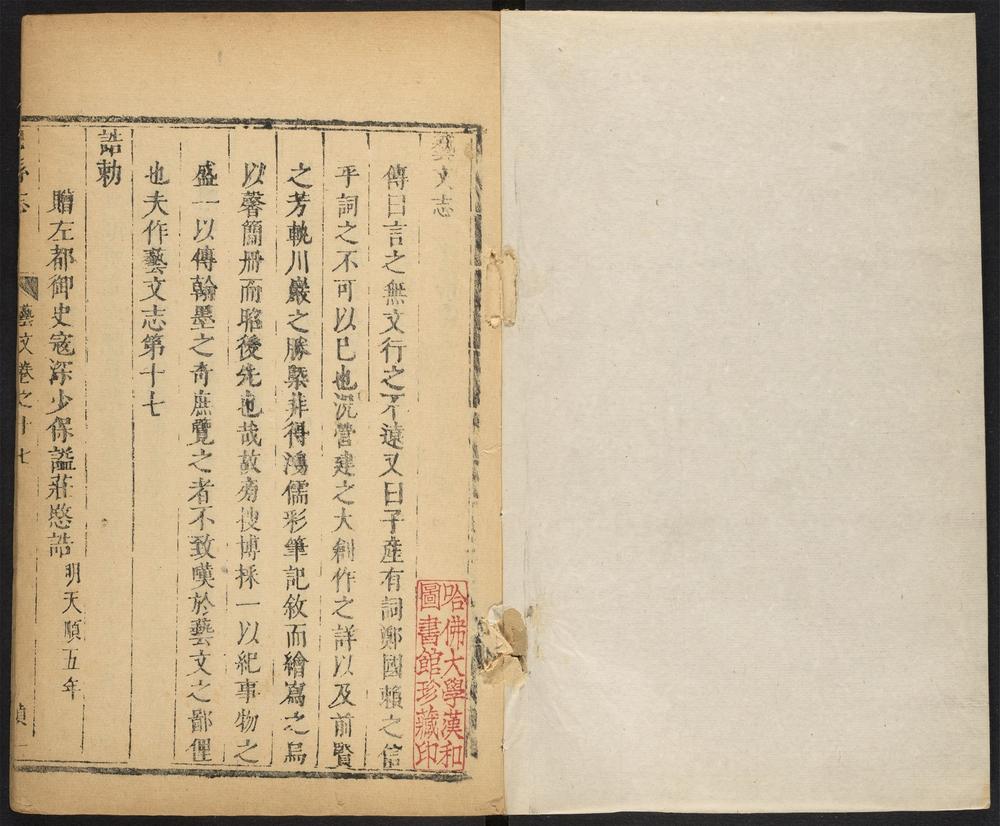 藝文志
傳曰言之無文行之不遠又曰子產有詞鄭國賴之信
乎詞之不可以已也況營建之大創作之詳以及前賢
之芳軌川巖之勝槩非得鴻儒彩筆記敘而繪寫之烏
以馨簡冊而昭後先也哉故旁搜博採一以紀事物之
盛一以傳翰墨之奇庶覽之者不致嘆於藝文之鄙俚
也夫作藝文志第十七
誥勅
贈左都御史寇深少保謚莊愍誥 明天順五年
縣志 藝文卷之十七
哈佛大學漢和
圖書館珍藏印